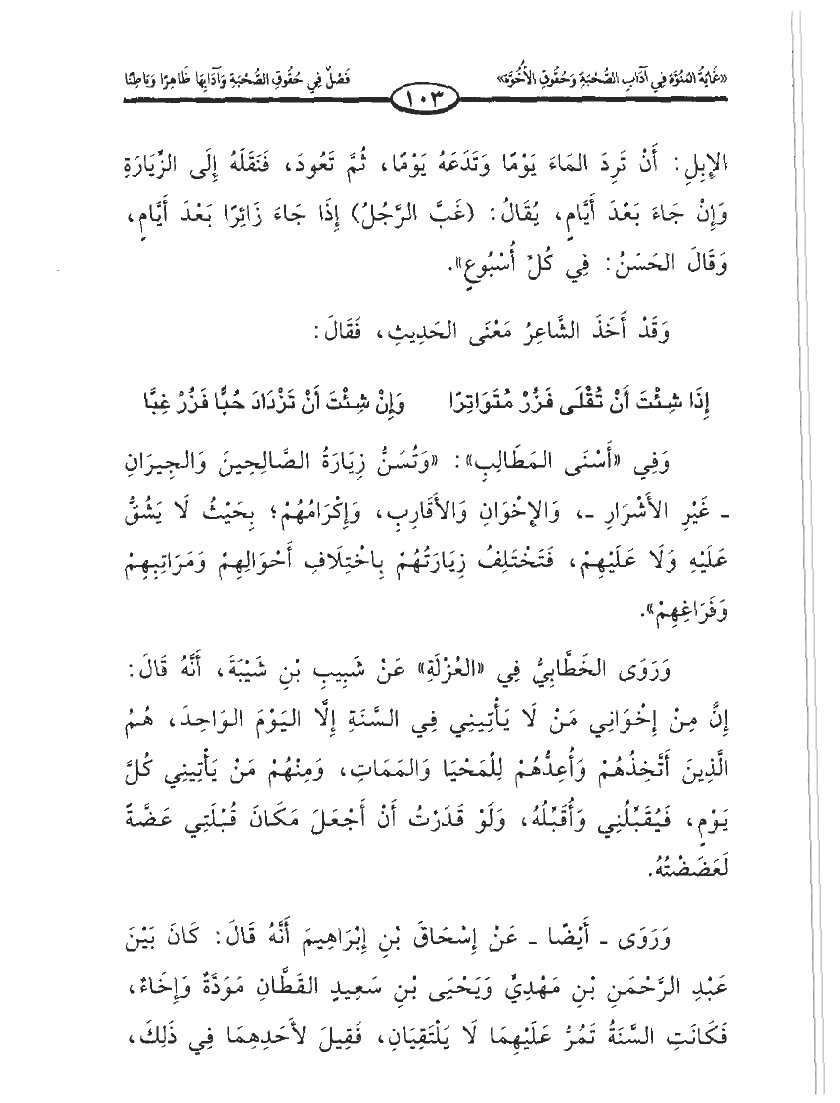 «غَايَةُ المُنُوَّه فِي آدَابِ الصُّحْبَةِ وَحُقُوقِ الأُخُوَّة» فَصْلٌ فِي حُقُوقِ الصُّحْبَةِ وَآدَابِهَا ظَاهِرًا وَبَاطِنًا
١٠٣
الإِبِلِ: أَنْ تَرِدَ المَاءَ يَوْمًا وَتَدَعَهُ يَوْمًا، ثُمَّ تَعُودَ، فَنَقَلَهُ إِلَى الزِّيَارَةِ
وَإِنْ جَاءَ بَعْدَ أَيَّامٍ، يُقَالُ: (غَبَّ الرَّجُلُ) إِذَا جَاءَ زَائِرًا بَعْدَ أَيَّامٍ،
وَقَالَ الحَسَنُ: فِي كُلِّ أُسْبُوعٍ».
وَقَدْ أَخَذَ الشَّاعِرُ مَعْنَى الحَدِيثِ، فَقَالَ:
إِذَا شِئْتَ أَنْ تُقْلَى فَزُرْ مُتَوَاتِرًا وَإِنْ شِئْتَ أَنْ تَزْدَادَ حُبًّا فَزُرْ غِبًّا
وَفِي «أَسْنَى المَطَالِبِ»: «وَتُسَنُّ زِيَارَةُ الصَّالِحِينَ وَالجِيرَانِ
ـ غَيْرِ الأَشْرَارِ ـ، وَالإِخْوَانِ وَالأَقَارِبِ، وَإِكْرَامُهُمْ؛ بِحَيْثُ لَا يَشُقُّ
عَلَيْهِ وَلَا عَلَيْهِمْ، فَتَخْتَلِفُ زِيَارَتُهُمْ بِاخْتِلَافِ أَحْوَالِهِمْ وَمَرَاتِبِهِمْ
وَفَرَاغِهِمْ».
وَرَوَى الخَطَّابِيُّ فِي «العُزْلَةِ» عَنْ شَبِيبِ بْنِ شَيْبَةَ، أَنَّهُ قَالَ:
إِنَّ مِنْ إِخْوَانِي مَنْ لَا يَأْتِينِي فِي السَّنَةِ إِلَّا اليَوْمَ الوَاحِدَ، هُمُ
الَّذِينَ أَتَّخِذُهُمْ وَأُعِدُّهُمْ لِلْمَحْيَا وَالمَمَاتِ، وَمِنْهُمْ مَنْ يَأْتِينِي كُلَّ
يَوْمٍ، فَيُقَبِّلُنِي وَأُقَبِّلُهُ، وَلَوْ قَدَرْتُ أَنْ أَجْعَلَ مَكَانَ قُبْلَتِي عَضَّةً
لَعَضَضْتُهُ.
وَرَوَى ـ أَيْضًا ـ عَنْ إِسْحَاقَ بْنِ إِبْرَاهِيمَ أَنَّهُ قَالَ: كَانَ بَيْنَ
عَبْدِ الرَّحْمَنِ بْنِ مَهْدِيٍّ وَيَحْيَى بْنِ سَعِيدٍ القَطَّانِ مَوَدَّةٌ وَإِخَاءٌ،
فَكَانَتِ السَّنَةُ تَمُرُّ عَلَيْهِمَا لَا يَلْتَقِيَانِ، فَقِيلَ لأَحَدِهِمَا فِي ذَلِكَ،